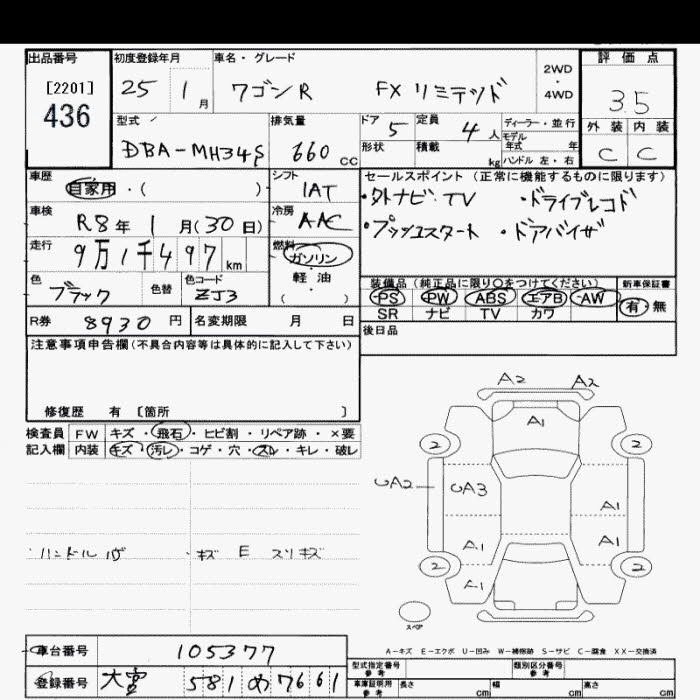 出品番号
[2201]
436
初度登録年月
25 1 月
車名・グレード
ワゴンR FX リミテッド
2WD
・
4WD
評価点
3.5
外装 内装
C C
型式
DBA-MH34S
排気量
660 cc
ドア 5
定員 4 人
ディーラー・並行
モデル
年式 年
形状
積載 kg
ハンドル 左・右
車歴
自家用・( )
シフト
IAT
セールスポイント (正常に機能するものに限ります)
・外ナビ・TV ・ドライブレコド
・プッシュスタート ・ドアバイザ
車検
R8年 1 月(30日)
冷房
AAC
走行
9万1千497 km
燃料
ガソリン
軽油
( )
色
ブラック
色替
色コード
ZJ3
装備品 (純正品に限り○をつけてください)
新車保証書
PS PW ABS エアB AW
SR ナビ TV カワ
有・無
R券 8930 円
名変期限 月 日
後日品
注意事項申告欄(不具合内容等は具体的に記入して下さい)
修復歴 有 [箇所 ]
検査員
記入欄
FW キズ・飛石・ヒビ割・リペア跡・×要
内装 キズ・汚レ・コゲ・穴・スレ・キレ・破レ
・ハンドル ・キズ E スリキズ
A2 A2
A1
2 2
UA2 UA3
A1
A1 A1
2 2
A1
スペア
A-キズ E-エクボ U-凹み W-補修跡 S-サビ C-腐食 XX-交換済
車台番号 105377
登録番号 大宮 581 め 7661
型式指定番号
参考
類別区分番号
参考
車庫証明用
参考
長さ cm 幅 cm 高さ cm